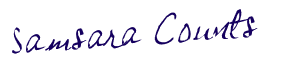 Samsara Counts